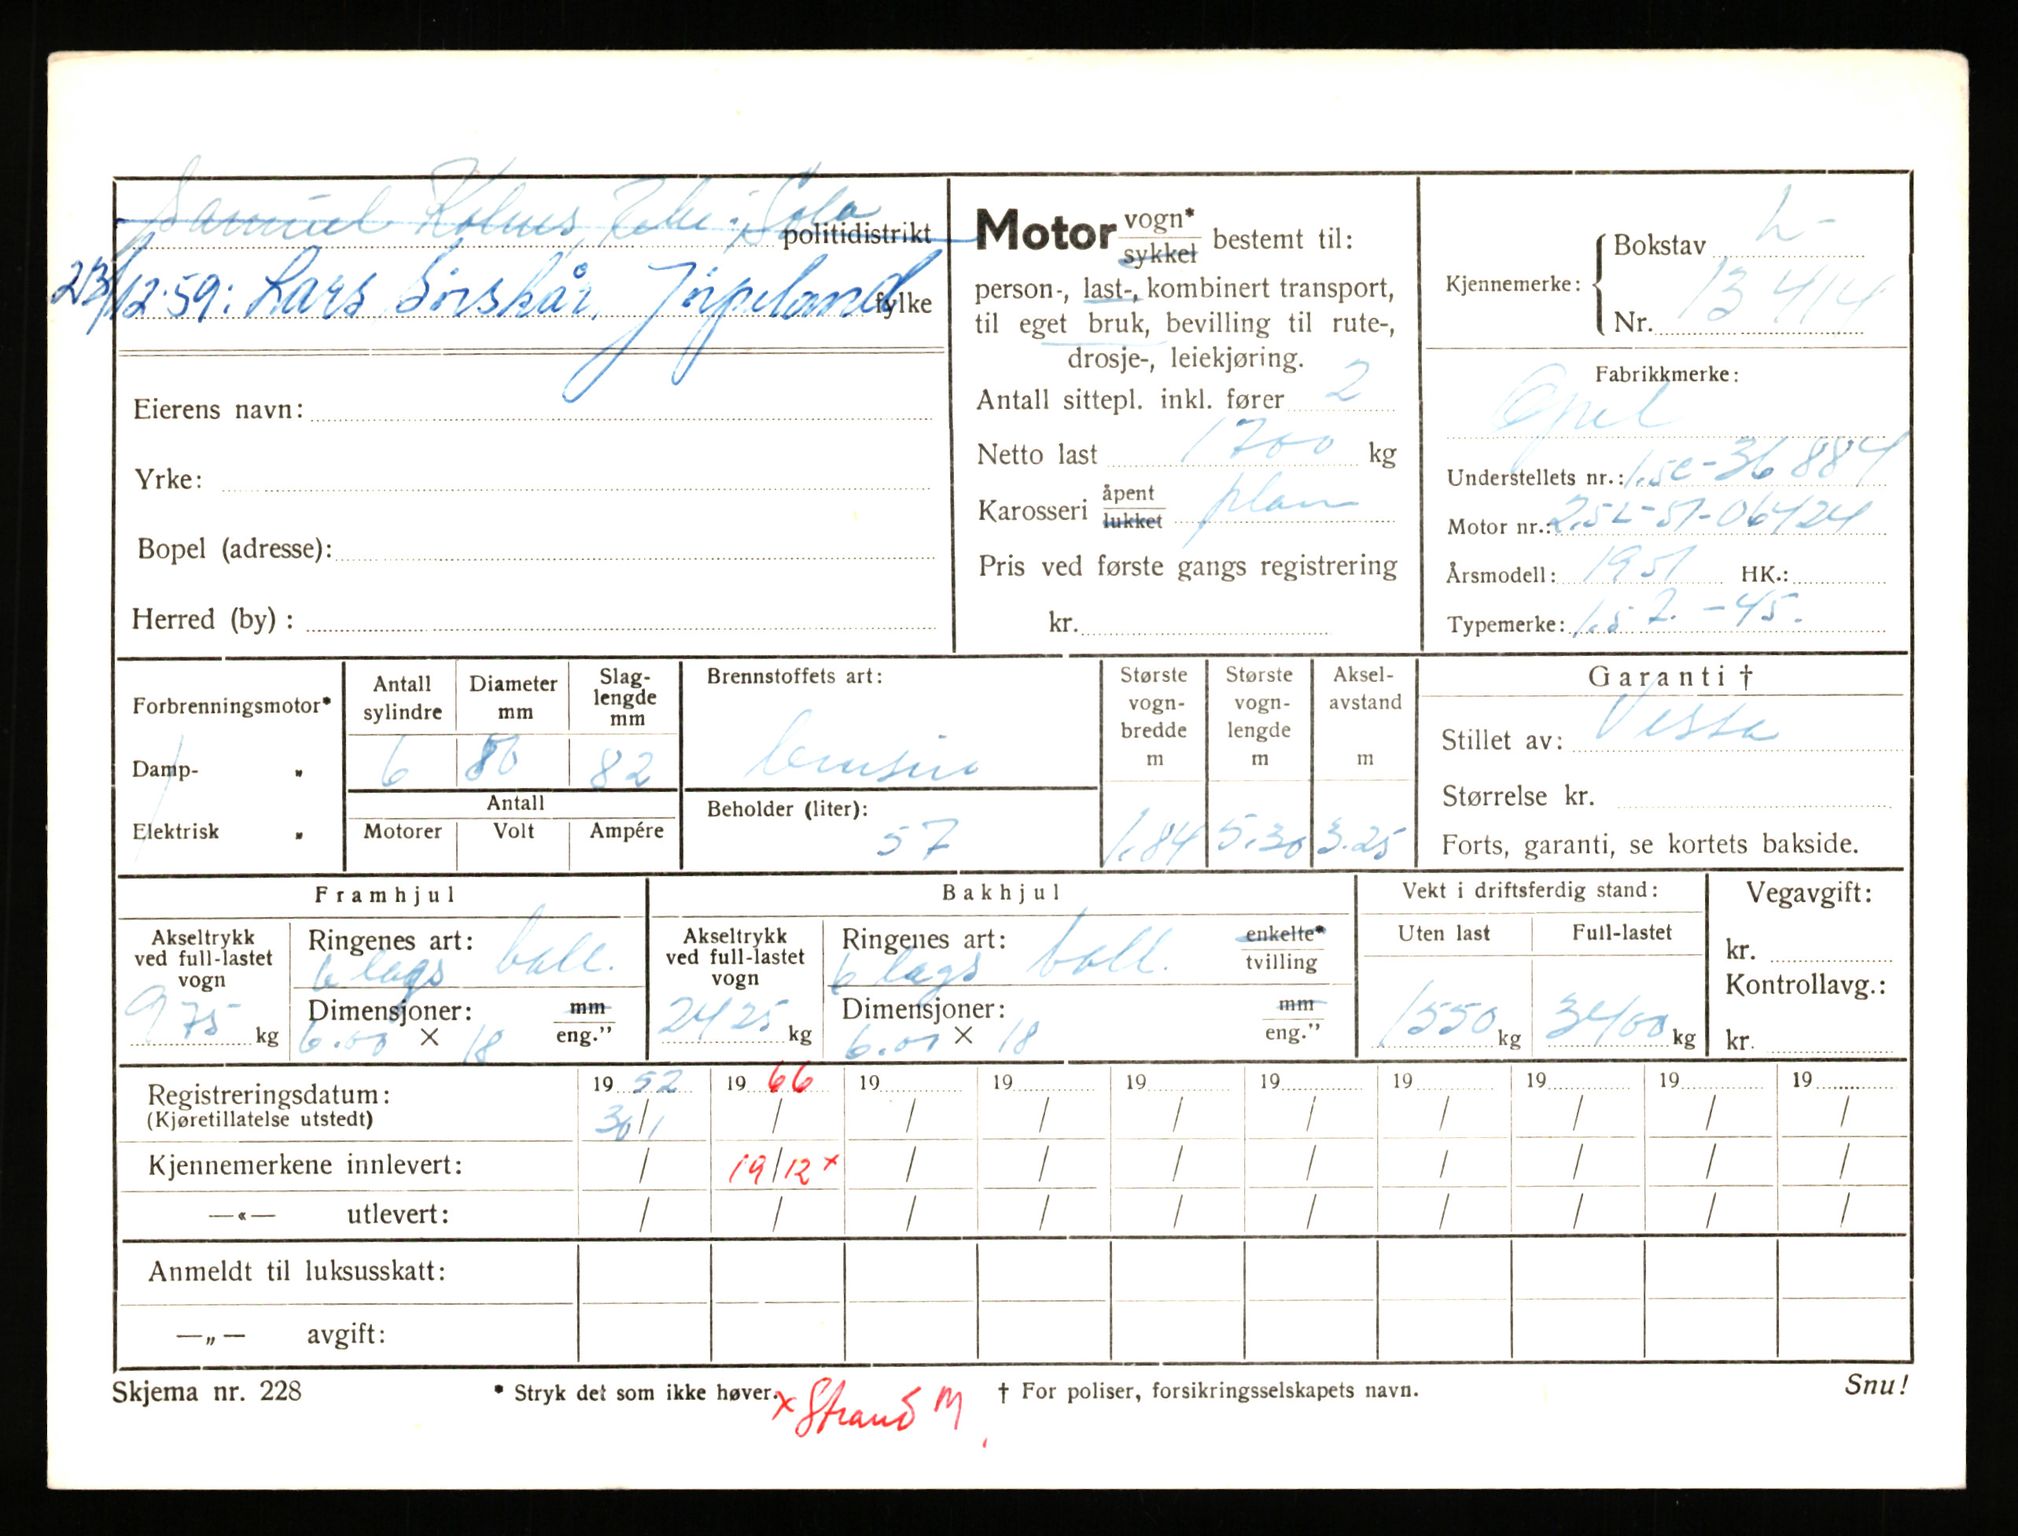 Samuel Kolnes, : Sola politidistrikt
23/12-59: Lars Sörskår, Jörpeland fylke
Eierens navn:
Yrke:
Bopel (adresse):
Herred (by) :
Motor vogn* / sykkel bestemt til:
person-, last-, kombinert transport,
til eget bruk, bevilling til rute-,
drosje-, leiekjøring.
Antall sittepl. inkl. fører 2
Netto last 1700 kg
Karosseri åpent / lukket plan
Pris ved første gangs registrering
kr.
Kjennemerke: Bokstav L-
Nr. 13414
Fabrikkmerke:
Opel
Understellets nr.: 1.5C-36884
Motor nr.: 2.5L-51-06424
Årsmodell: 1951 HK.:
Typemerke: 1.5 T. -45.
Forbrenningsmotor*
Damp- „
Elektrisk „
Antall sylindre 6
Diameter mm 80
Slaglengde mm 82
Antall
Motorer Volt Ampére
Brennstoffets art:
bensin
Beholder (liter):
57
Største vognbredde m 1.84
Største vognlengde m 5.30
Akselavstand m 3.25
Garanti †
Stillet av: Vesta
Størrelse kr.
Forts, garanti, se kortets bakside.
Framhjul
Akseltrykk ved full-lastet vogn 975 kg
Ringenes art: 6 lags ball.
Dimensjoner: mm / eng."
6.00 × 18
Bakhjul
Akseltrykk ved full-lastet vogn 2425 kg
Ringenes art: enkelte* / tvilling
6 lags ball.
Dimensjoner: mm / eng."
6.00 × 18
Vekt i driftsferdig stand:
Uten last Full-lastet
1550 kg 3400 kg
Vegavgift:
kr.
Kontrollavg.:
kr.
Registreringsdatum: 19 52 19 66 19 19 19 19 19 19 19 19
(Kjøretillatelse utstedt) 30/1 / / / / / / / / /
Kjennemerkene innlevert: / 19/12 x / / / / / / / /
—«— utlevert: / / / / / / / / / /
Anmeldt til luksusskatt:
—„— avgift:
Skjema nr. 228 * Stryk det som ikke høver. † For poliser, forsikringsselskapets navn. Snu!
x Strand M.